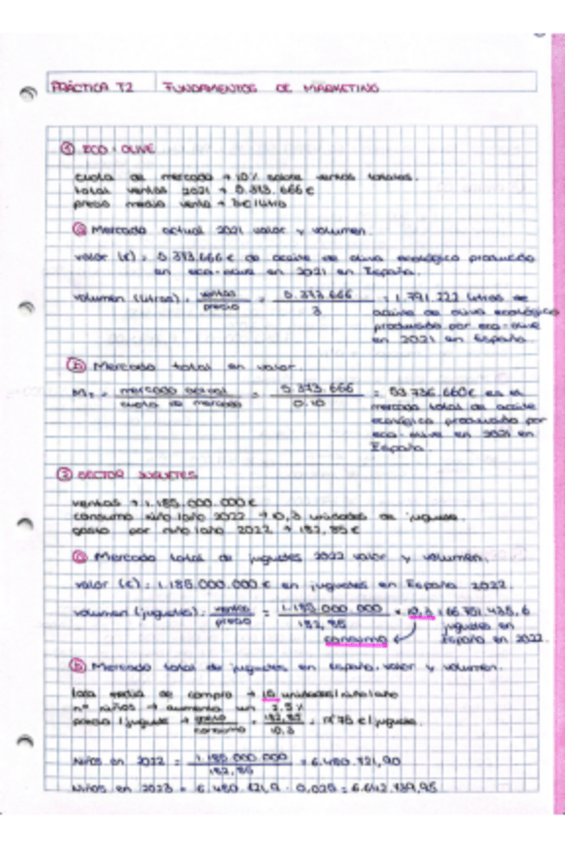 PRÁCTICA T2 FUNDAMENTOS DE MARKETING
① ECO-OLIVE
cuota de mercado → 10% sobre ventas totales.
total ventas 2021 → 5.373.666€
precio medio venta → 3€/litro
ⓐ Mercado actual 2021 valor y volumen.
valor (€) = 5.373.666€ de aceite de oliva ecológico producido
en eco-olive en 2021 en España.
volumen (litros) = ventas / precio = 5.373.666 / 3 = 1.791.222 litros de
aceite de oliva ecológico
producido por eco-olive
en 2021 en España.
ⓑ Mercado total en valor.
= mercado actual / cuota de mercado = 5.373.666 / 0.10 = 53.736.660€ es el
mercado total de aceite
ecológico producido por
eco-olive en 2021 en
España.
② SECTOR JUGUETES
ventas → 1.185.000.000€
consumo niño/año 2022 → 10,3 unidades de juguete.
gasto por niño/año 2022 → 182,85€
ⓐ Mercado total de juguetes 2022 valor y volumen.
valor (€) = 1.185.000.000€ en juguetes en España 2022.
volumen (juguetes) = ventas / precio = 1.185.000.000 / 182,85 × 10,3 = 66.751.435,6
juguetes en
consumo España en 2022.
ⓑ Mercado total de juguetes en España, valor y volumen.
tasa media de compra → 10 unidades/niño/año
nº niños → aumenta un 2.5%
precio/juguete → gasto / consumo = 182,85 / 10,3 = 17'75€/juguete.
Niños en 2022 = 1.185.000.000 / 182,85 = 6.480.721,90
Niños en 2023 = 6.480.721,9 · 0,025 = 6.642.739,95